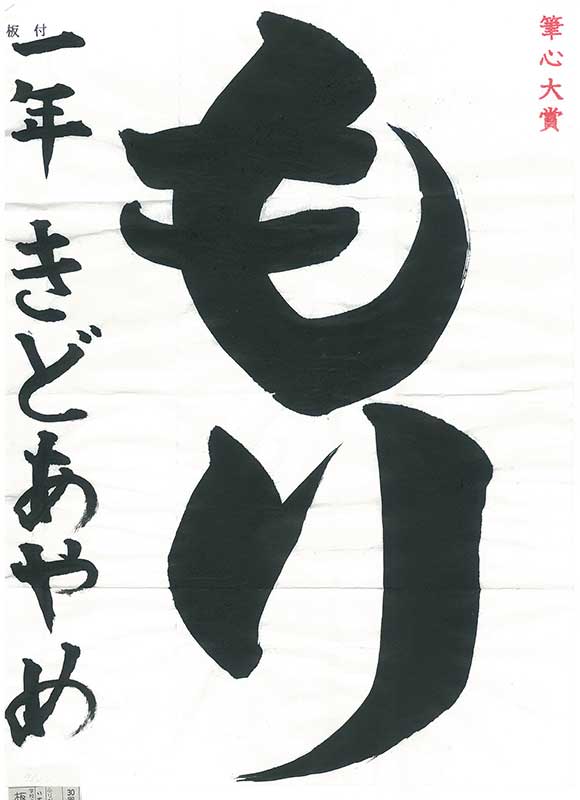 筆心大賞
もり
一年 きどあやめ
板付
板
30